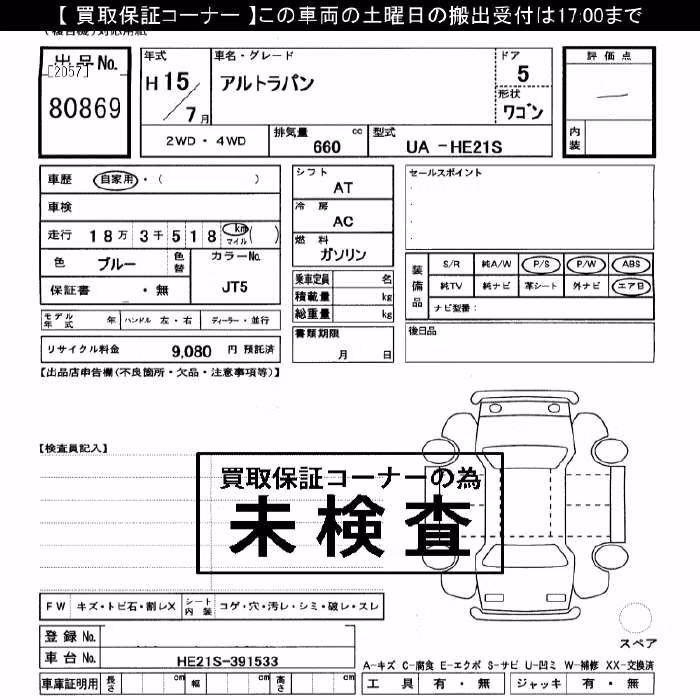 【 買取保証コーナー 】この車両の土曜日の搬出受付は17:00まで
出品No.
[2057]
80869
年式
H 15
7月
車名・グレード
アルトラパン
ドア
5
形状
ワゴン
評価点
内装
2WD ・ 4WD
排気量 cc
660
型式
UA -HE21S
車歴 自家用・( )
車検
走行 18万 3千 5 1 8 km ( )
マイル
色 ブルー 色替
カラーNo.
JT5
保証書 ・無
シフト
AT
冷房
AC
燃料
ガソリン
乗車定員 名
積載量 kg
総重量 kg
セールスポイント
装備品
S/R 純A/W P/S P/W ABS
純TV 純ナビ 革シート 外ナビ エアB
ナビ型番:
モデル年式 年 ハンドル 左・右 ディーラー・並行
書類期限
月 日
後日品
リサイクル料金 9,080 円 預託済
【出品店申告欄(不良箇所・欠品・注意事項等)】
【検査員記入】
買取保証コーナーの為
未検査
FW キズ・トビ石・割レX シート内装 コゲ・穴・汚レ・シミ・破レ・スレ
登録No.
車台No. HE21S-391533
車庫証明用 長さ cm 幅 cm 高さ cm
スペア
A-キズ C-腐食 E-エクボ S-サビ U-凹ミ W-補修 XX-交換済
工具 有・無 ジャッキ 有・無